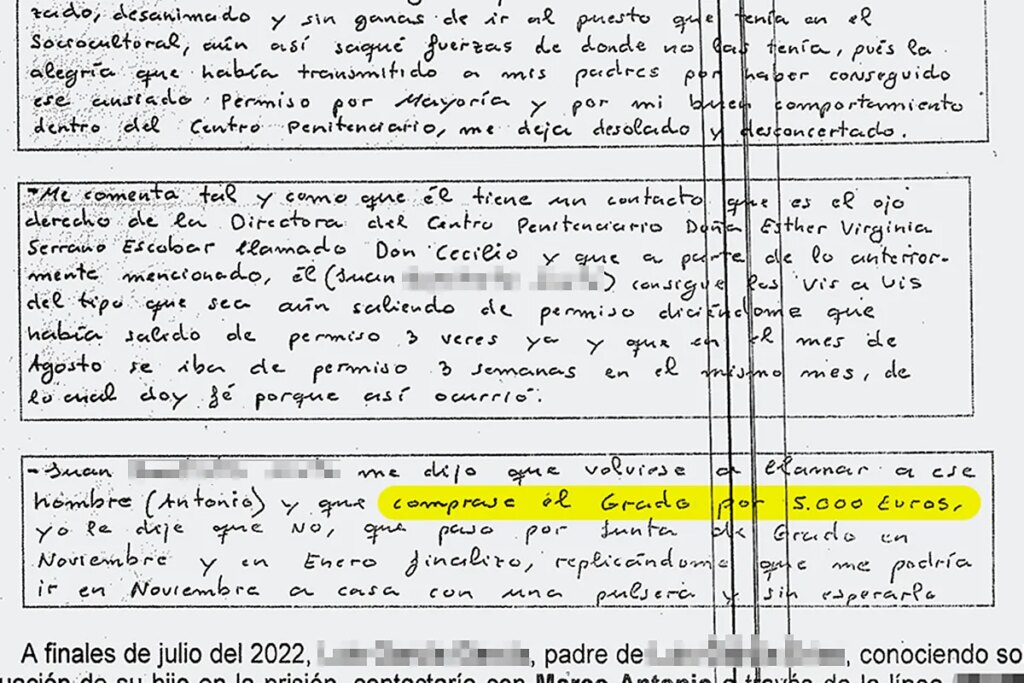 zado, desanimado y sin ganas de ir al puesto que tenía en el
Sociocultoral, aún así saqué fuerzas de donde no las tenía, pués la
alegría que había transmitido a mis padres por haber conseguido
ese ansiado Permiso por Mayoría y por mi buen comportamiento
dentro del Centro Penitenciario, me deja desolado y desconcertado.
-Me comenta tal y como que él tiene un contacto que es el ojo
derecho de la Directora del Centro Penitenciario Doña Esther Virginia
Serrano Escobar llamado Don Cecilio y que a parte de lo anterior-
mente mencionado, él (Juan ) consigue los Vis a Vis
del tipo que sea aún saliendo de permiso diciéndome que
había salido de permiso 3 veres ya y que en el mes de
Agosto se iba de permiso 3 semanas en el mismo mes, de
lo cual doy fé porque así ocurrió.
-Juan me dijo que volviese a llamar a ese
hombre (Antonio) y que comprase el Grado por 5.000 Euros,
yo le dije que NO, que paso por Junta de Grado en
Noviembre y en Enero finalizo, replicándome que me podría
ir en Noviembre a casa con una pulsera y sin esperarla
A finales de julio del 2022, , padre de , conociendo so
uación de su hijo en la prisión, contactaría con Marco Antonio a través de la línea